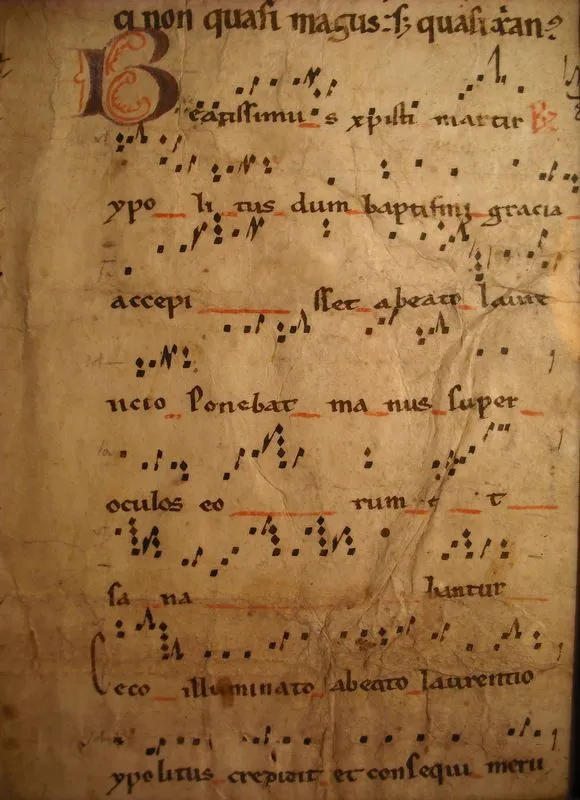 non quasi magus. quasi
Beatissimus xpisti martir
ypolitus dum baptismi gracia
accepisset abeato laure
ncio Ponebat manus super
oculos eorum et
sanabantur
Ceco illuminato abeato laurentio
ypolitus credidit et consequi meru